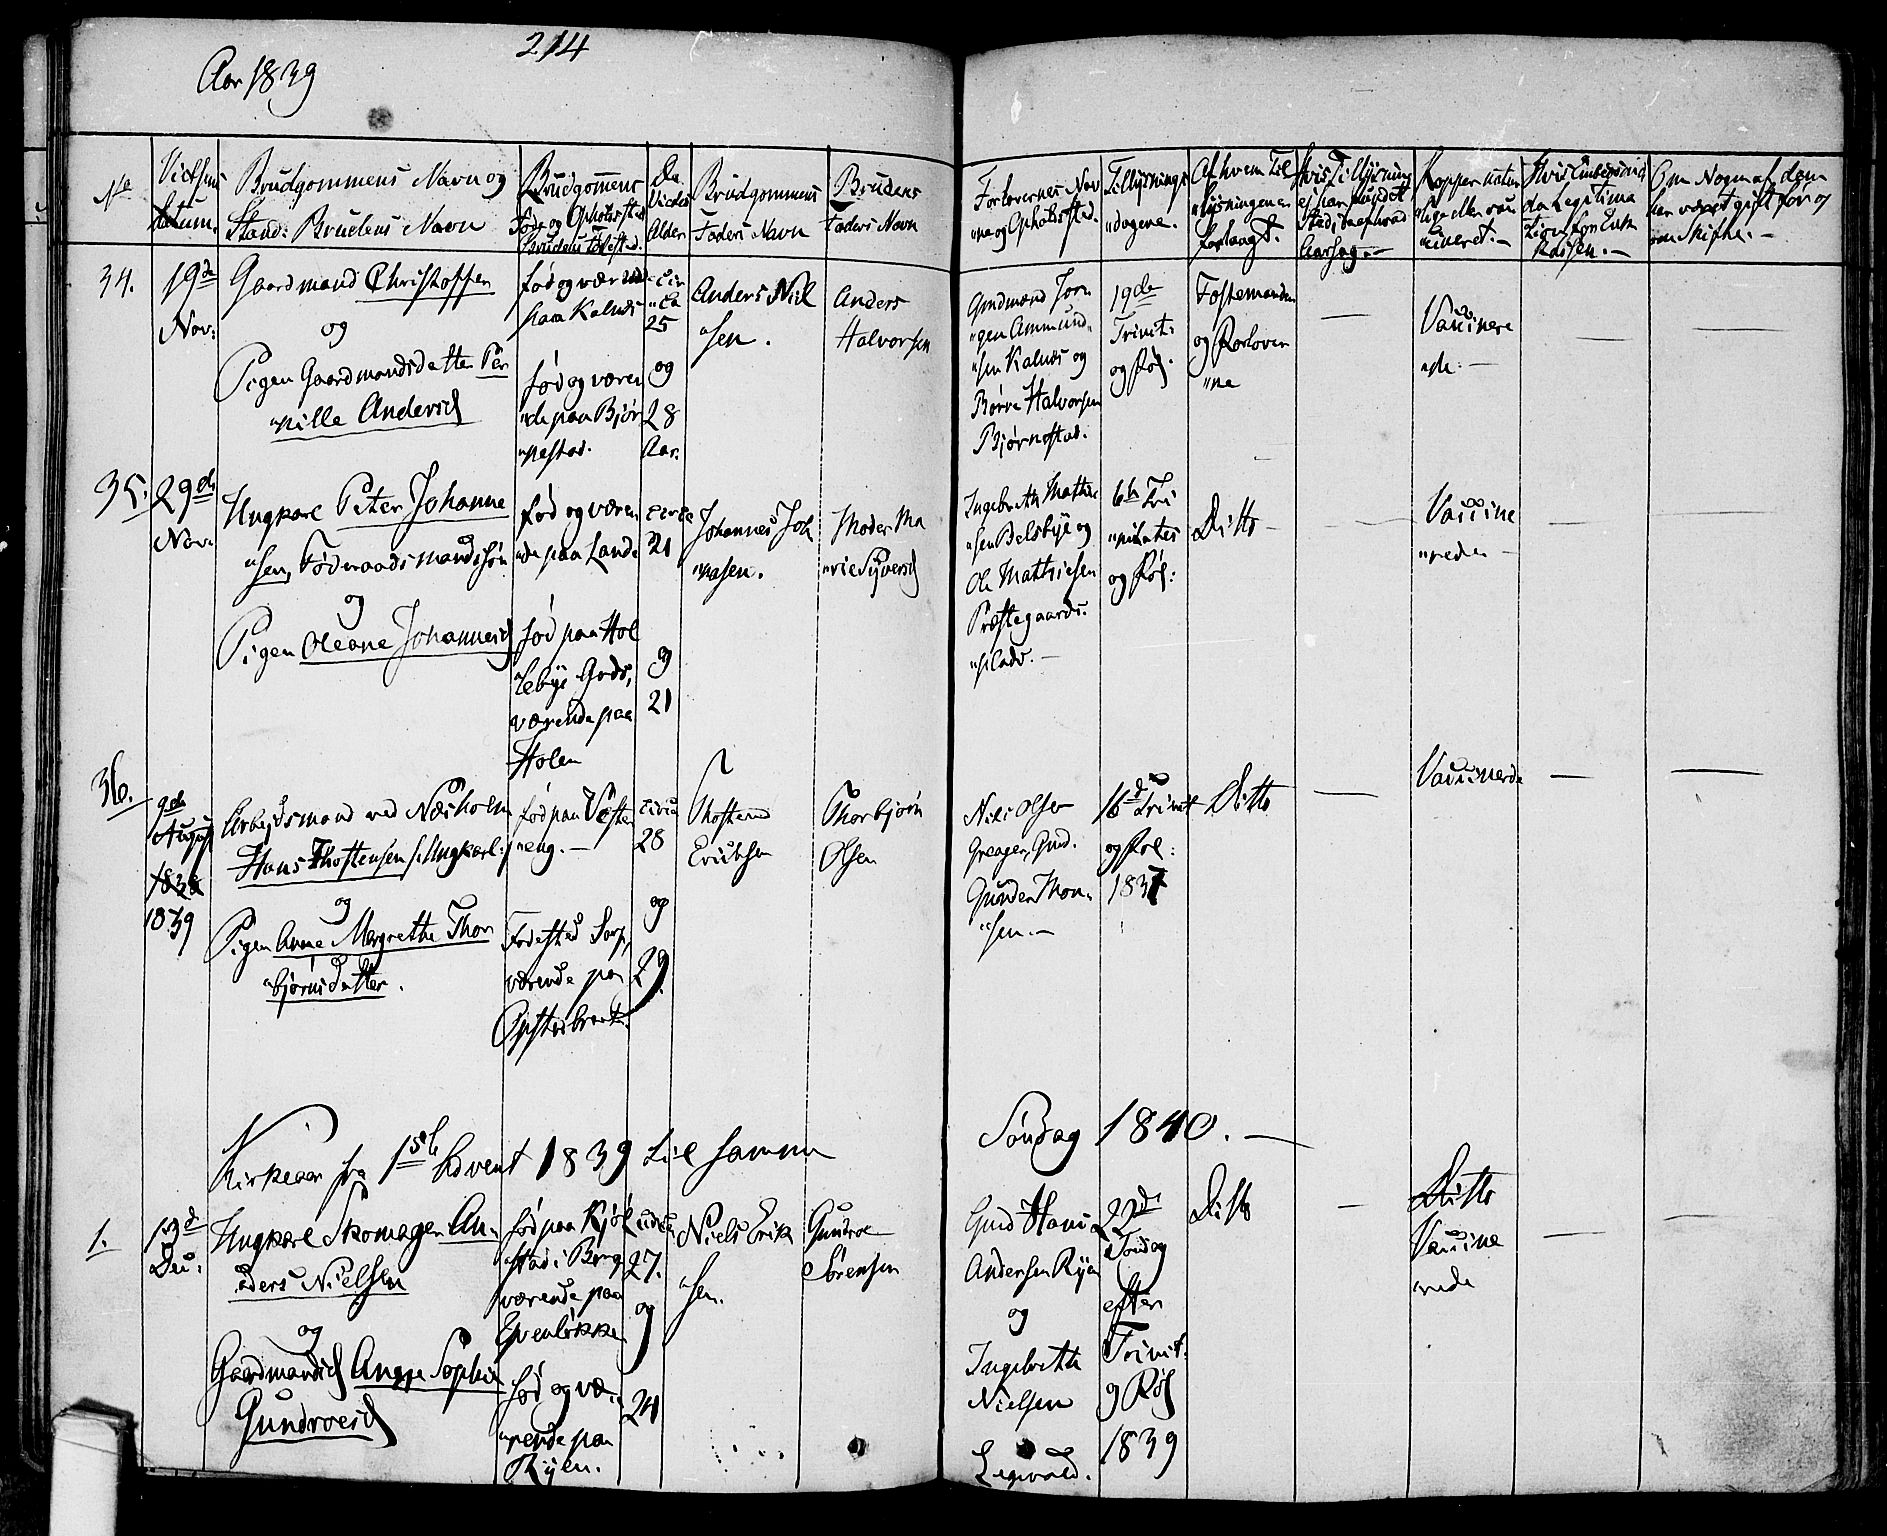 214
Aar 1839
No
Vielses
Datum.
Brudgommens Navn og
Stand: Brudens Navn
Brudgomens
Føde og Opholssted
Brudens Fødested.
De
Viedes
Alder
Brudgommens
Faders Navn
Brudens
Faders Navn
Forlovernes Nav
"ne og Opholssted.
Tillysnings
"dagene.
Af hvem Til
"lysningen er
forlangt.
Hvis Tillysning
ej har fundet
Sted, da af hvad
Aarsag.-
Kopper natur
"lige eller vac
"cineret.-
Om Nogen af dem
har været gift før og
om Skifte.-
34.
19de
Nov:
Gaardmand Christoffer
og
Pigen Gaardmandsdatter Per
"nille Andersd
fød og værende
paa Kalnæs
fød og væren
"de paa Bjør
"nestad.
cir
"ca
25
og
28
Aar.
Anders Niel
"sen.
Anders
Halvorsen
Gmdmænd Jørn
"gen Ammund-
"sen Kalnæs og
Børre Halvorsen
Bjørnestad.
19de
Trinit:
og Føl.
Fostemanden
og Forlover
"ne
Vaccinere
"de.-
35.
29de
Nov.
Ungkarl Peter Johanne
"sen, Føderaadsmandssøn
og
Pigen Oleane Johannesd
fød og væren
"de paa Lande
fød paa Hol
"leby Gods,
værende paa
Holen
circa
21
og
21
Johannes Joh
"nasen.
Moder Ma
"rie Syversd
Ingebreth Mathie
"sen Belsbye og
Ole Mathiesen
Præstegaards.
"plads.-
6te Tri
"nitates
og Føl:
Ditto-
Vaccine
"rede-
36.
9de
August
1838
1839
Arbejdsmand ved Næsholm
Hans Thostensen /:Ungkarl:/
og
Pigen Anne Margrethe Thor
"bjørnsdatter.
fød paa Vester
"eng.-
Fødested Sarp,
værende pa
circa
28
og
29.
Thosten
Erichsen
Thorbjørn
Olsen
Niels Olsen
Greager, Gmd.
Gunder Mon-
"sen.-
16d Trinit
og Føl:
1837
Ditto
Vaccinerde
Kirkeaar fra 1ste Advent 1839 til samme
Søndag 1840.-
1.
13d
Dec.
Ungkarl Skomager An-
"ders Nielsen
og
Gaardmandsd Anne Sophie
Gundroesd
fød paa Kjøl
"stad i Borg
værende paa
Evenløkke
fød og væ-
"rende paa
Ryen.
circa
27.
og
24
Niels Erik
"sen.
Gundroe
Sørensen
Gmd Hans
Andersen Ryen
og
Ingebreth
Nielsen
22d
Søndag
efter
Trinit.
og Føl
1839
Ditto
Ditto
Vaccine
rede